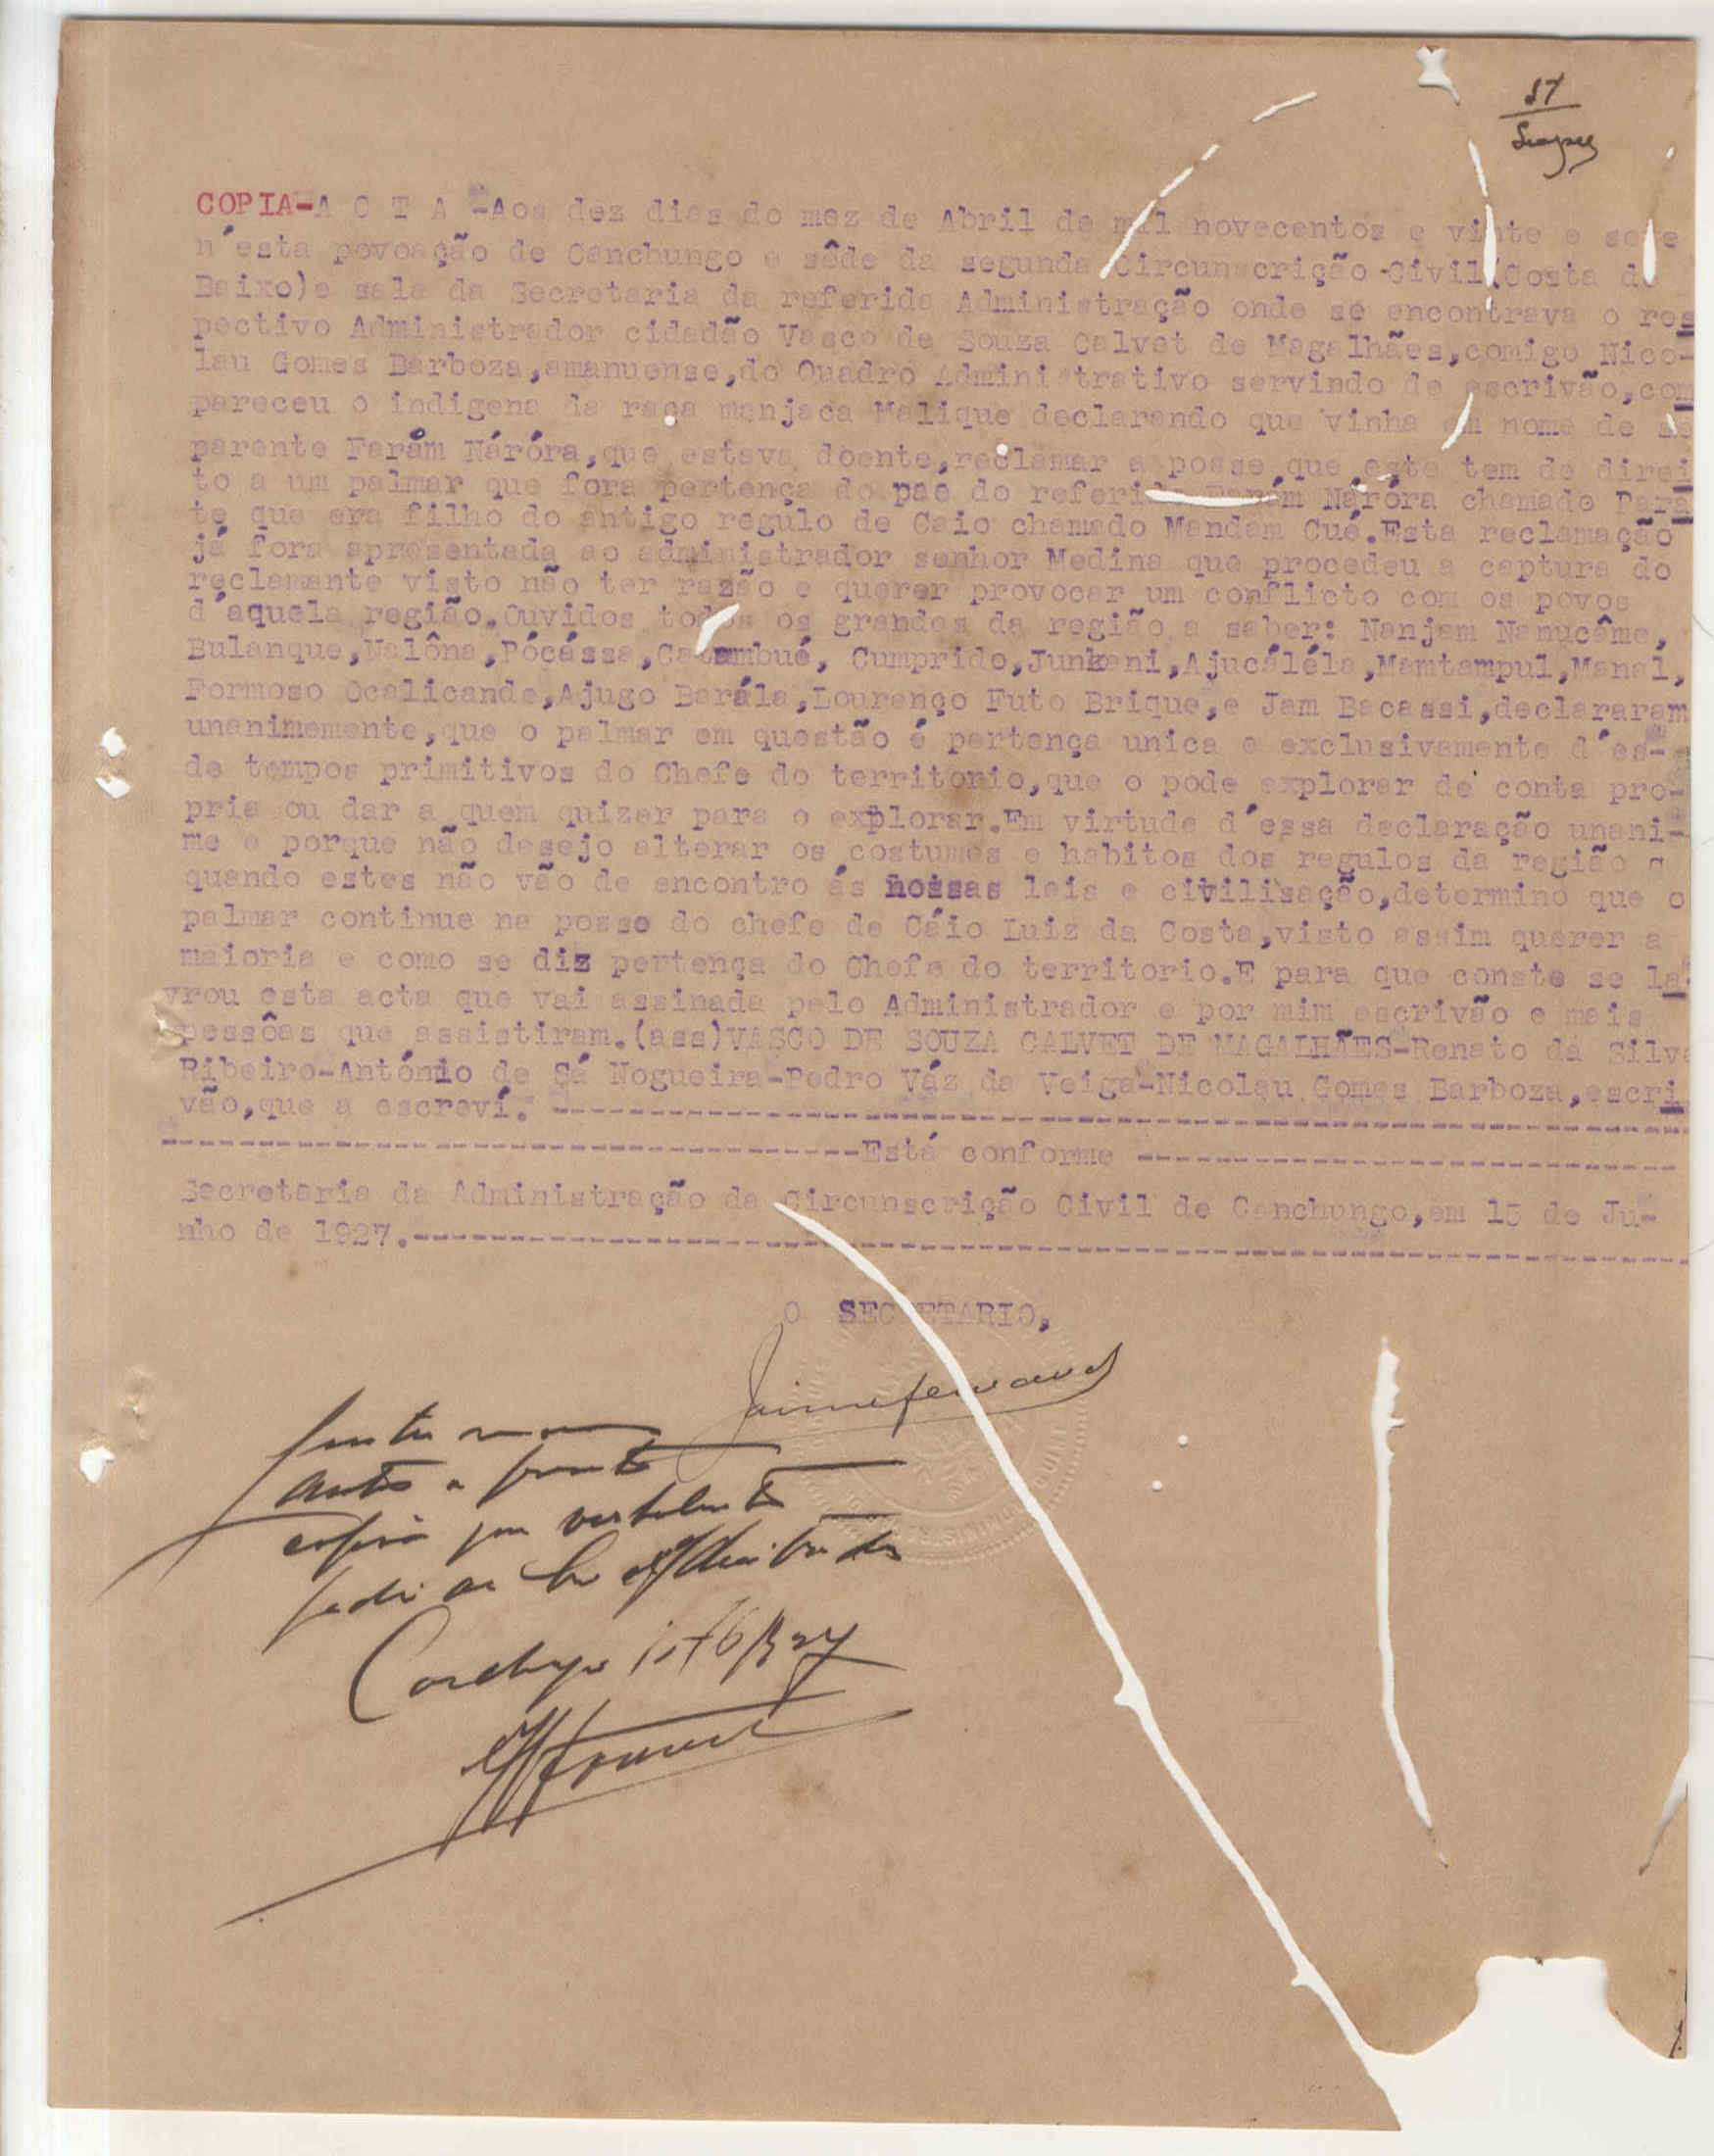 57
COPIA-A C T A -Aos dez dias do mez de Abril de mil novecentos e vinte e sete
n'esta povoação de Canchungo e sêde da segunda Circunscrição Civil(Costa de
Baixo)e sala da Secretaria da referida Administração onde se encontrava o res
pectivo Administrador cidadão Vasco de Souza Calvet de Magalhães,comigo Nico-
lau Gomes Barboza,amanuense,do Quadro Administrativo servindo de escrivão,com
pareceu o indigena da raça manjaca Malique declarando que vinha em nome de se
parente Farám Náróra,que estava doente,reclamar a posse que este tem de direi
to a um palmar que fora pertença do pae do referido Farám Náróra chamado Para
te que era filho do antigo regulo de Caio chamado Mandam Cué.Esta reclamação
já fora apresentada ao administrador senhor Medina que procedeu a captura do
reclamante visto não ter razão e querer provocar um conflicto com os povos
d'aquela região.Ouvidos todos os grandes da região a saber: Nanjam Nanucême,
Bulanque,Nalôna,Pócássa,Catambué, Cumprido,Junkani,Ajucáléla,Mamtampul,Manal,
Formoso Ocalicanda,Ajugo Barála,Lourenço Futo Brique,e Jam Bacassi,declararam
unanimemente,que o palmar em questão é pertença unica e exclusivamente d'es-
de tempos primitivos do Chefe do territorio,que o pode explorar de conta pro-
pria ou dar a quem quizer para o explorar.Em virtude d'essa declaração unani-
me e porque não desejo alterar os costumes e habitos dos regulos da região e
quando estes não vão de encontro ás nossas leis e civilisação,determino que o
palmar continue na posse do chefe de Cáio Luiz da Costa,visto assim querer a
maioria e como se diz pertença do Chefe do territorio.E para que conste se la-
vrou esta acta que vai assinada pelo Administrador e por mim escrivão e mais
pessôas que assistiram.(ass)VASCO DE SOUZA CALVET DE MAGALHÃES-Renato da Silva
Ribeiro-António de Sá Nogueira-Pedro Váz da Veiga-Nicolau Gomes Barboza,escri
vão,que a escreví.
Está conforme
Secretaria da Administração da Circunscrição Civil de Canchungo,em 15 de Ju-
nho de 1927.
O SECRETARIO,
Jaime
autos a
copia que
pedi ao